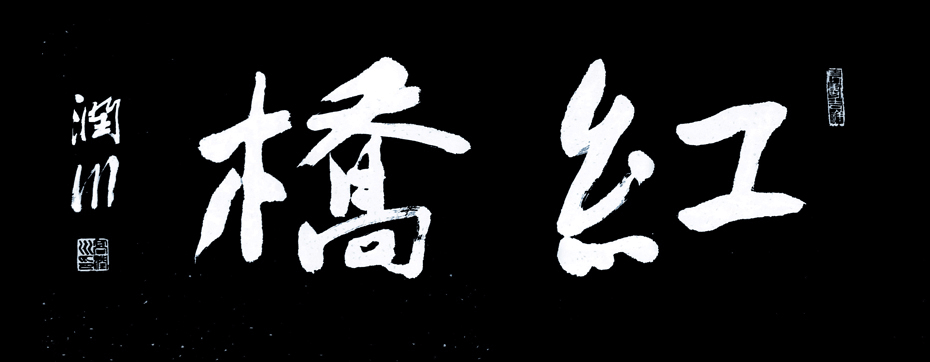 紅橋
潤川